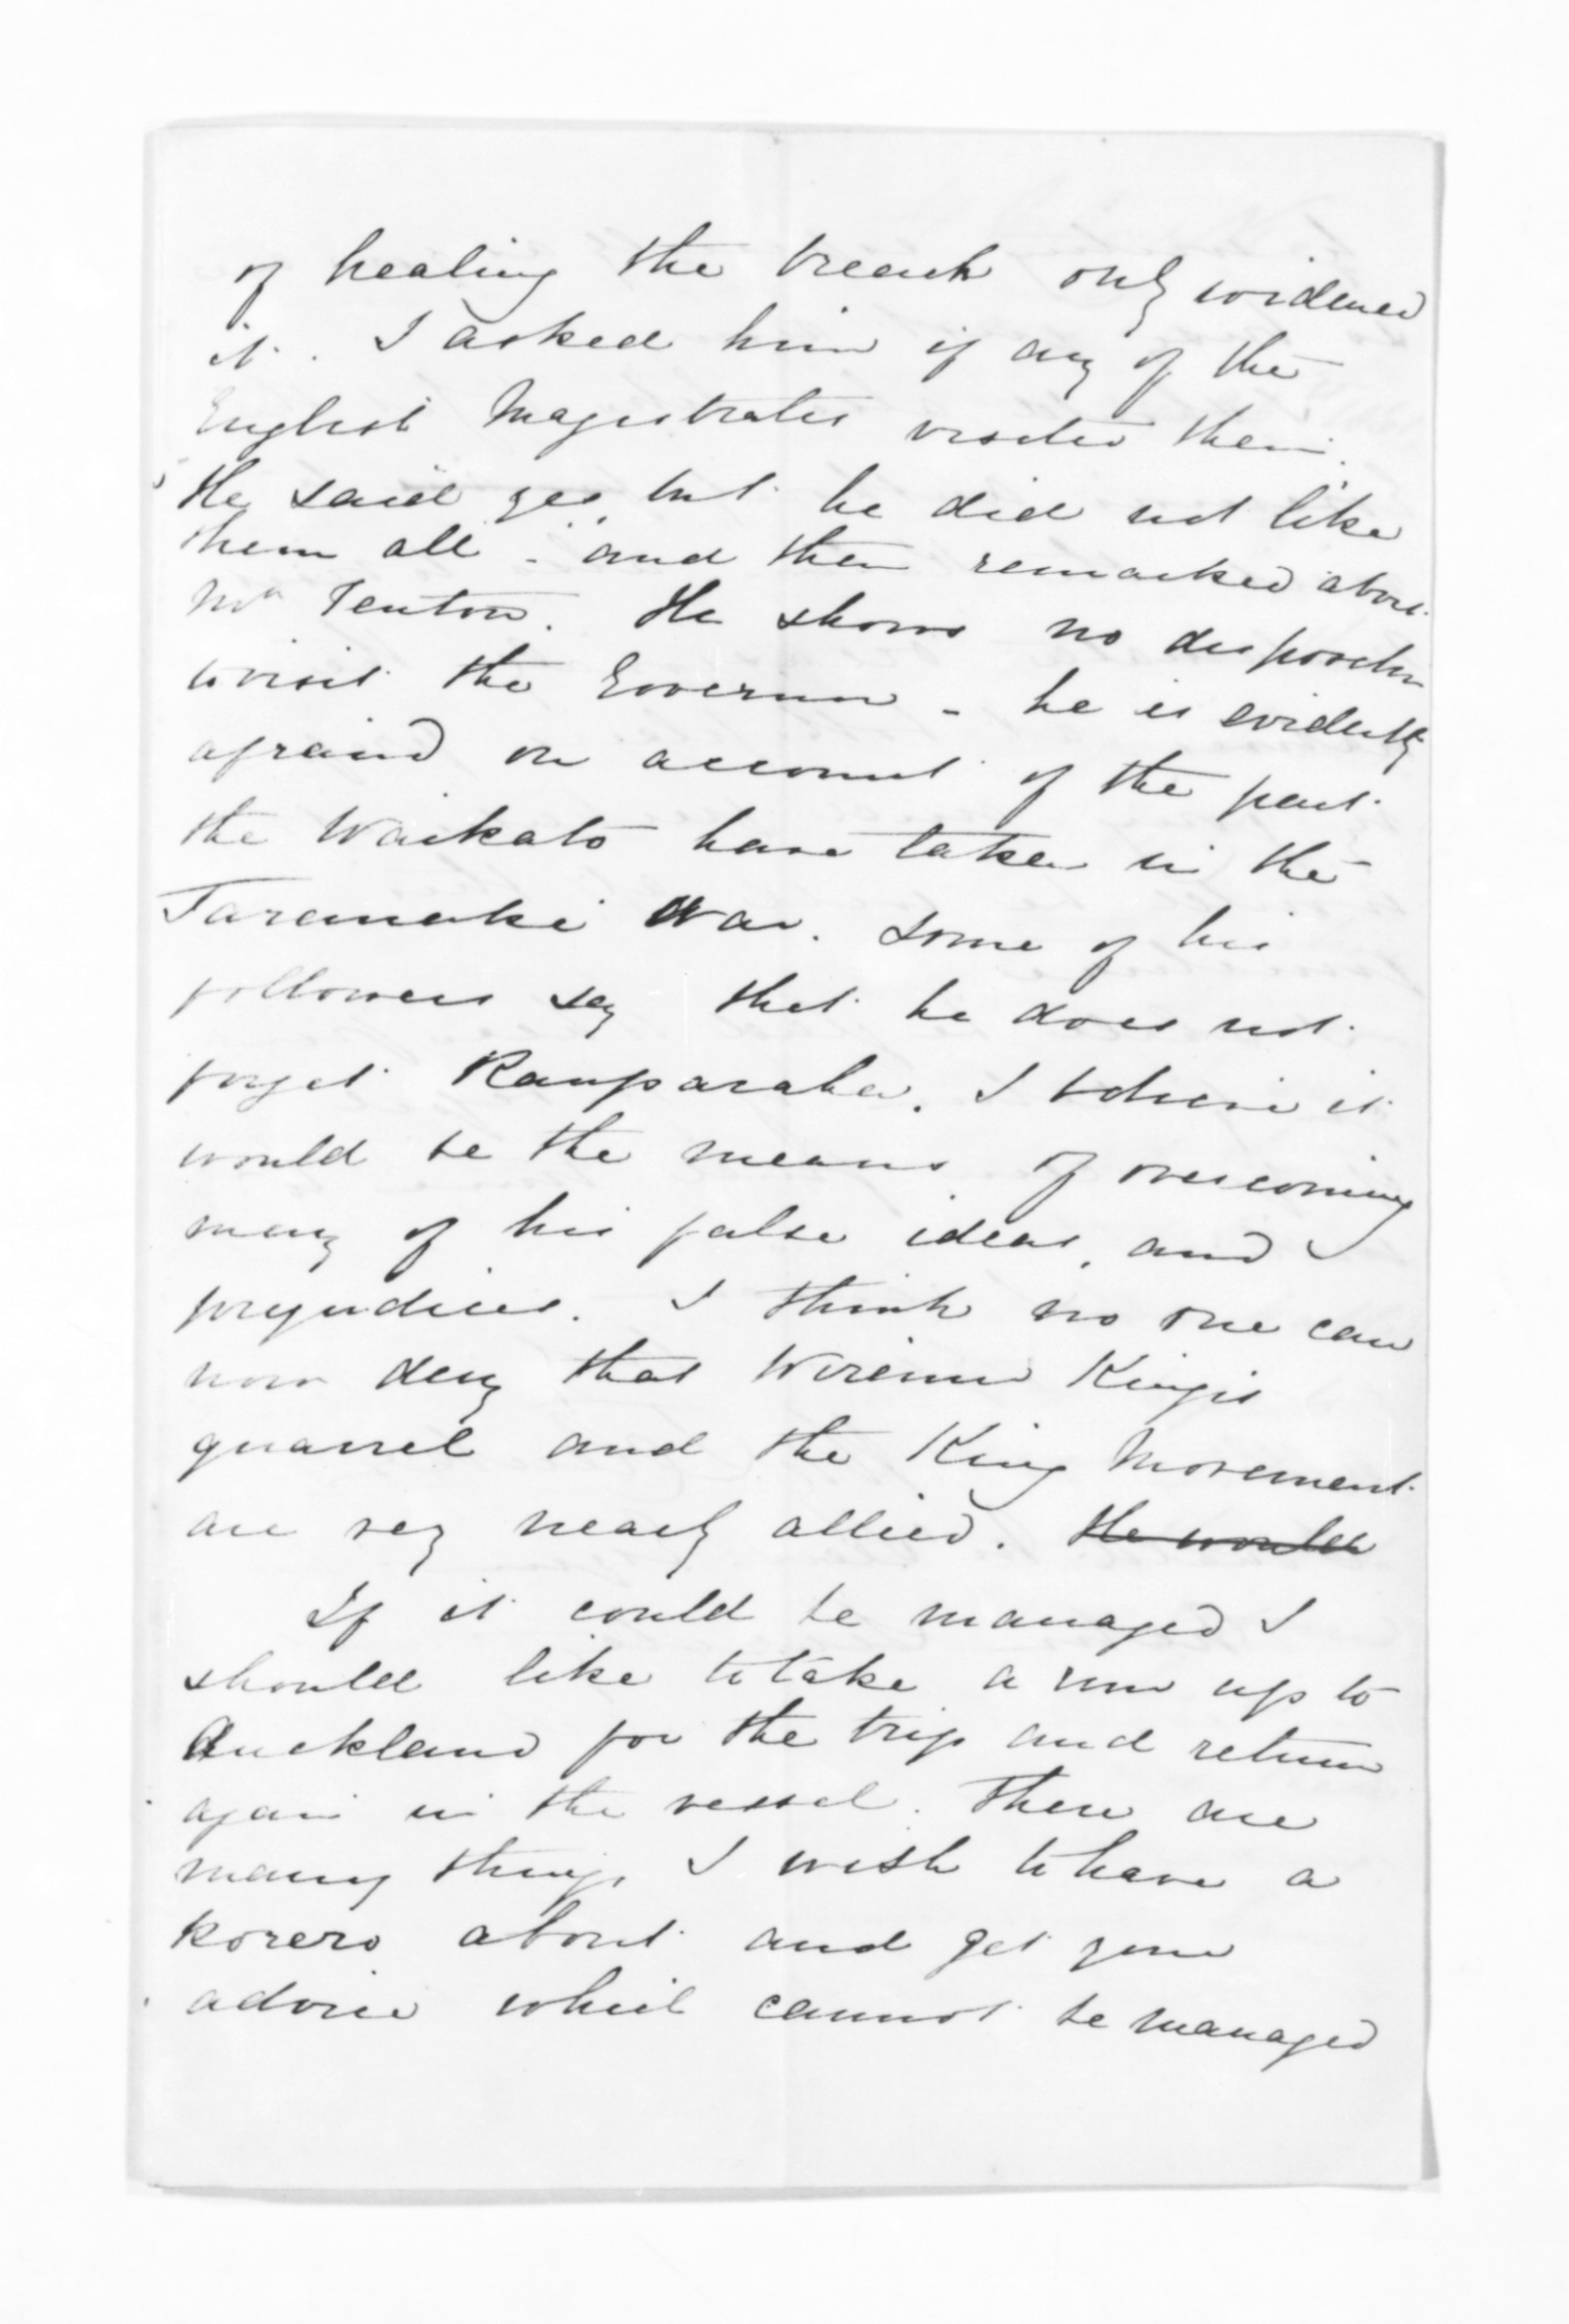 of healing the breach only widened
it. I asked him if any of the
English Magistrates visited them.
He said yes, but he did not like
them all - and then remarked about
Mr Fenton. He shows no disposition
to visit the Governor - he is evidently
afraid on account of the part
the Waikato have taken in the
Taranaki War. Some of his
followers say that he does not
forget Rauparaha. I believe it
would be the means of overcoming
many of his false ideas, and
prejudices. I think no one can
now deny that Wiremu Kingis
quarrel and the King Movement
are very nearly allied. He would
If it could be managed I
should like to take a run up to
Auckland for the trip and return
again in the vessel. There are
many things I wish to have a
korero about and get your
advice which cannot be managed